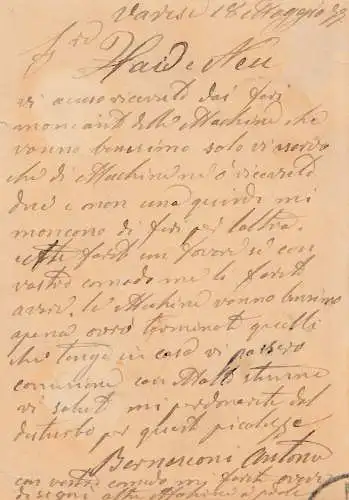 Varese 18 Maggio 89
Haid e Neu
vi acuso ricevuto dei feri
moncant delle Machine che
vanno benesimo solo vi scordo
che di Machine ne ò ricevuto
due e non una quindi mi
moncono di feri per l'altra.
farete un favore se con
vostro comodo me li farete
avere. le Machine vanno benisimo
apena ovrò terminat quelli
che tengo in casa vi passerò
comisione con stima
vi saluto mi perdonerete del
disturbo per queste picolesse
Bernasconi Antonio
con vostro comodo mi farete avere i
disegni